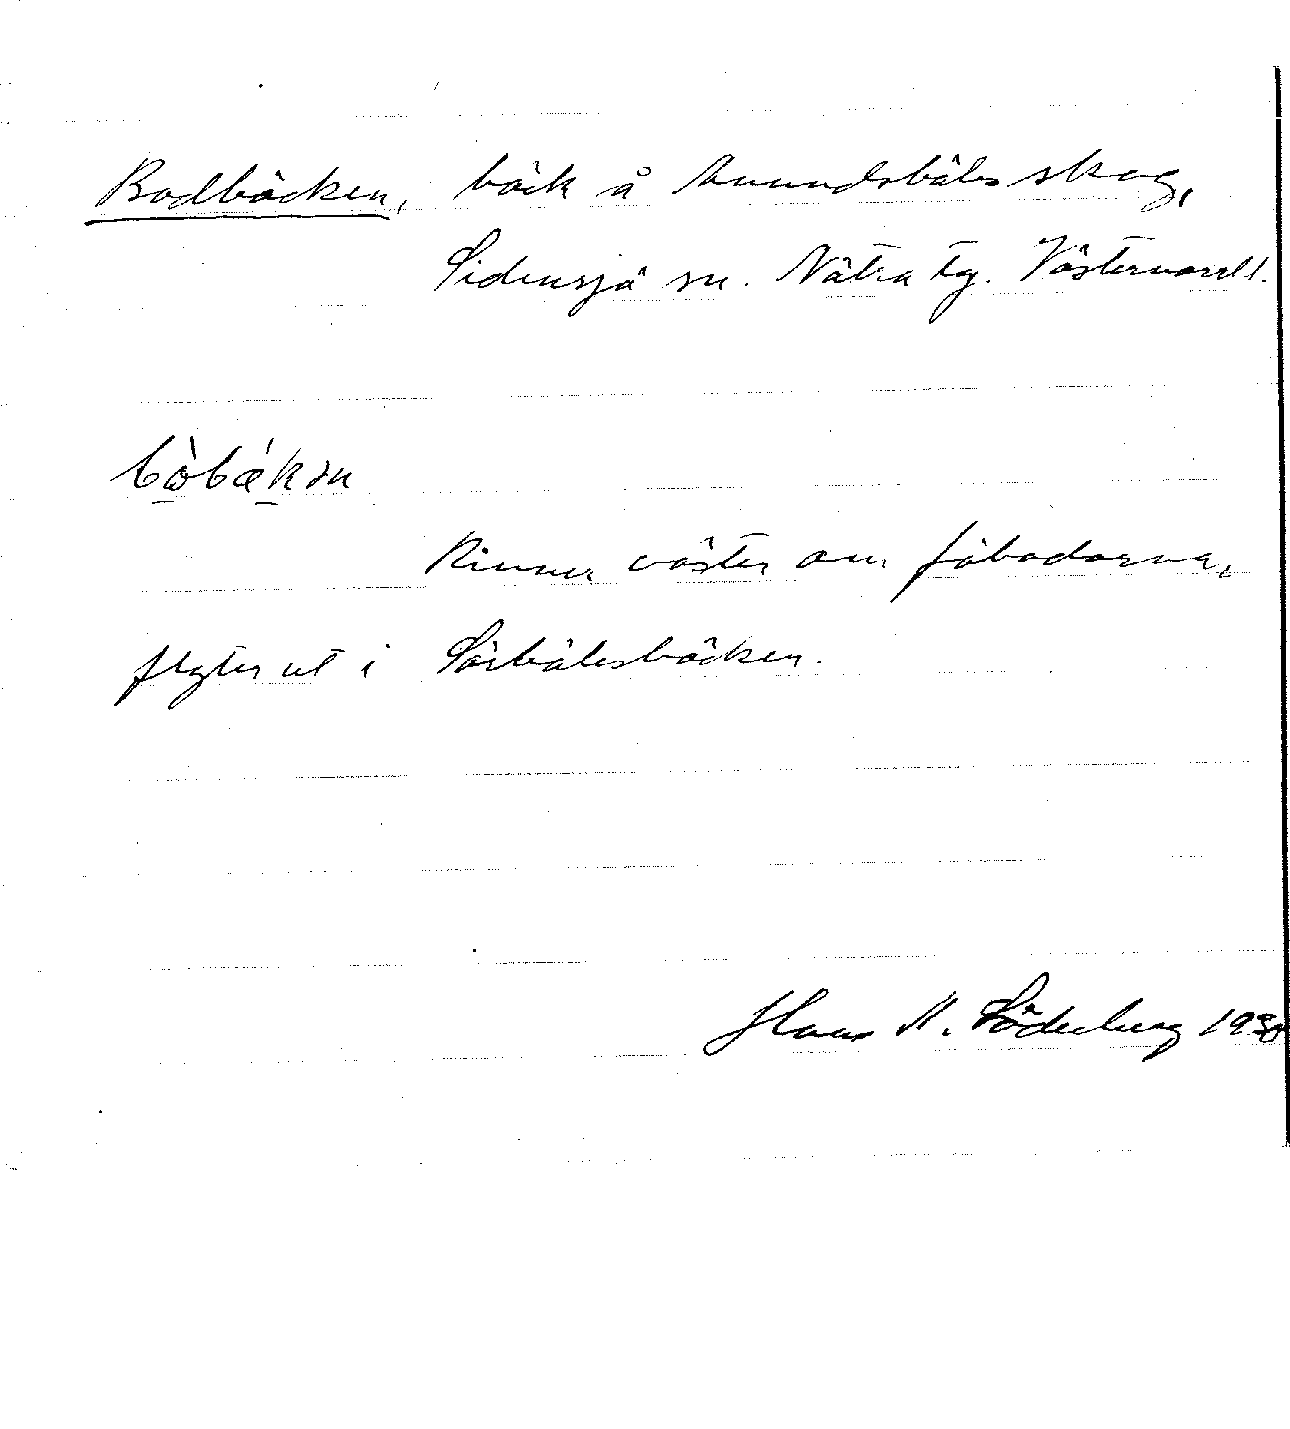 Bodbäcken, bäck å Anundsböles skog,
Sidensjö sn. Nätra tg. Västernorrl.
bo̠̊̀bǽ̠kən
Rinner väster om fäbodarna,
flyter ut i Sörbölesbäcken.
Hans M. Söderberg 1930